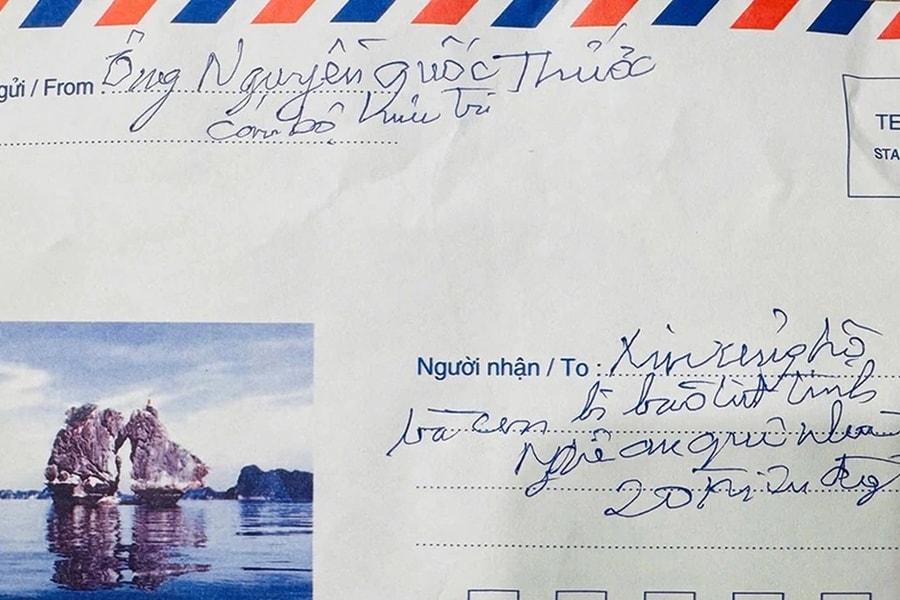 gửi / From Ông Nguyễn Quốc Thước
Cán bộ hưu trí
TE
STA
Người nhận / To : Xin ủng hộ
bà con bị bão lụt tỉnh
Nghệ an quê
20 triệu đồng